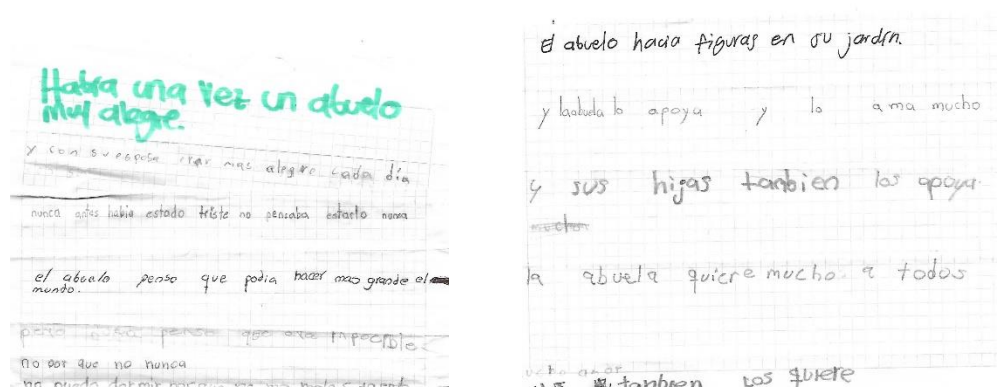 Habia una vez un abuelo
muy alegre.
y con su esposa mas alegre cada día
nunca antes habia estado triste no pensaba estarlo nunca
el abuelo penso que podia hacer mas grande el
mundo.
pero penso que era
no por que no nunca
no puedo dormir
El abuelo hacia figuras en su jardín.
y la abuela lo apoya y lo ama mucho
y sus hijas tanbien los apoya
mucho
la abuela quiere mucho a todos
amor
tanbien los quiere